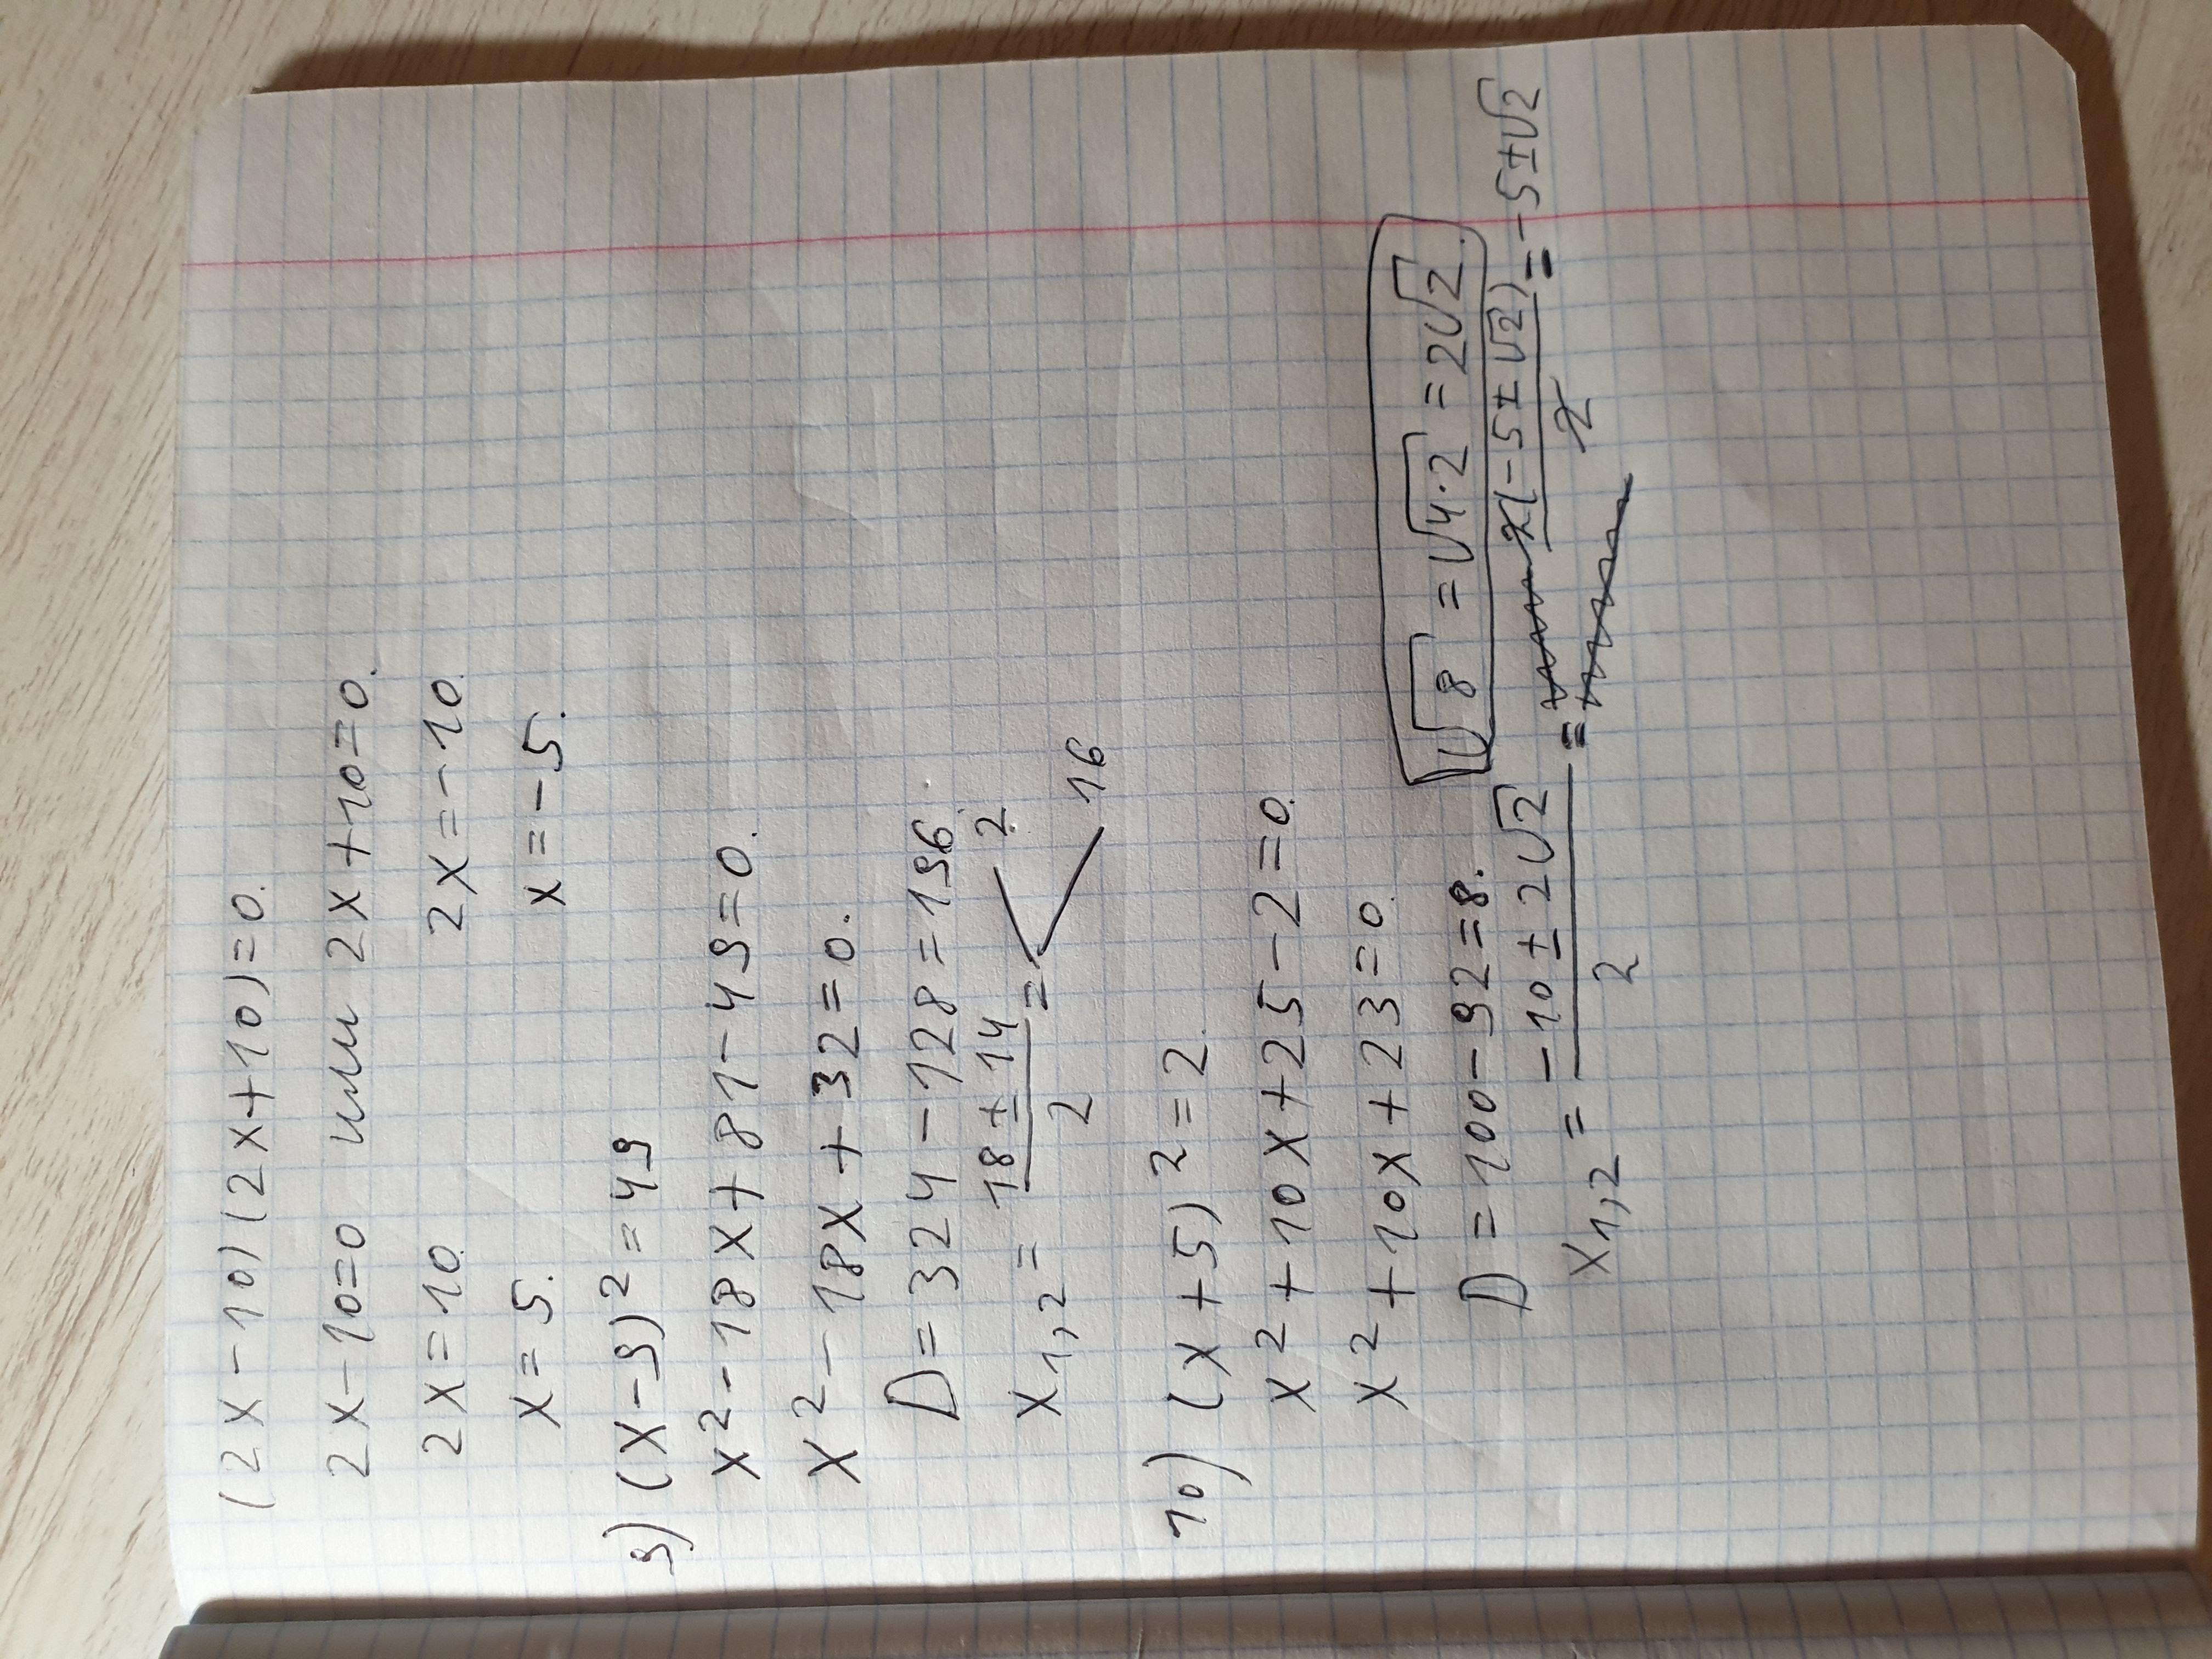 (2x-10)(2x+10)=0.
2x-10=0 или 2x+10=0.
2x=10. 2x=-10.
x=5. x=-5.
9) (x-9)²=49
x²-18x+81-49=0.
x²-18x+32=0.
D=324-128=196.
x1,2 = (18±14)/2 = 2. 16
10) (x+5)²=2.
x²+10x+25-2=0.
x²+10x+23=0.
D=100-92=8. √8=√4·2=2√2.
x1,2 = (-10±2√2)/2 = 2(-5±√2)/2 = -5±√2